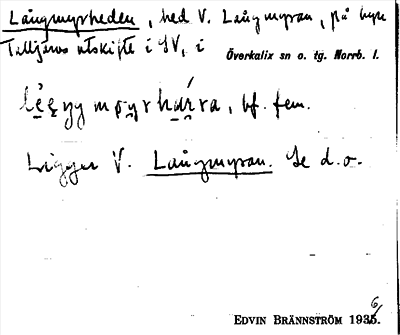 Långmyrheden, hed V. Långmyran, på byn
Talljärvs utskifte i SV, i Överkalix sn o. tg. Norrb. l.
bf. fem.
Ligger V. Långmyran. Se d.o.
EDVIN BRÄNNSTRÖM 1936